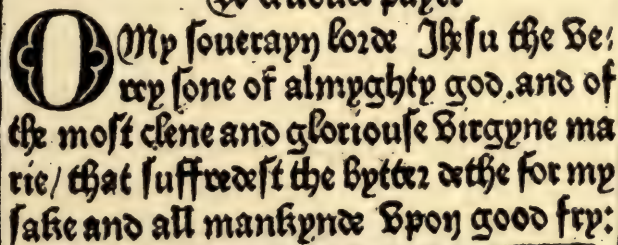 O My souerayn lorde Jhesu the Ve:
rey sone of almyghty god, and of
the most clene and gloriouse Virgyne ma
rie/ that suffredest the bytter dethe for my
sake and all mankynde Vpon good fry: